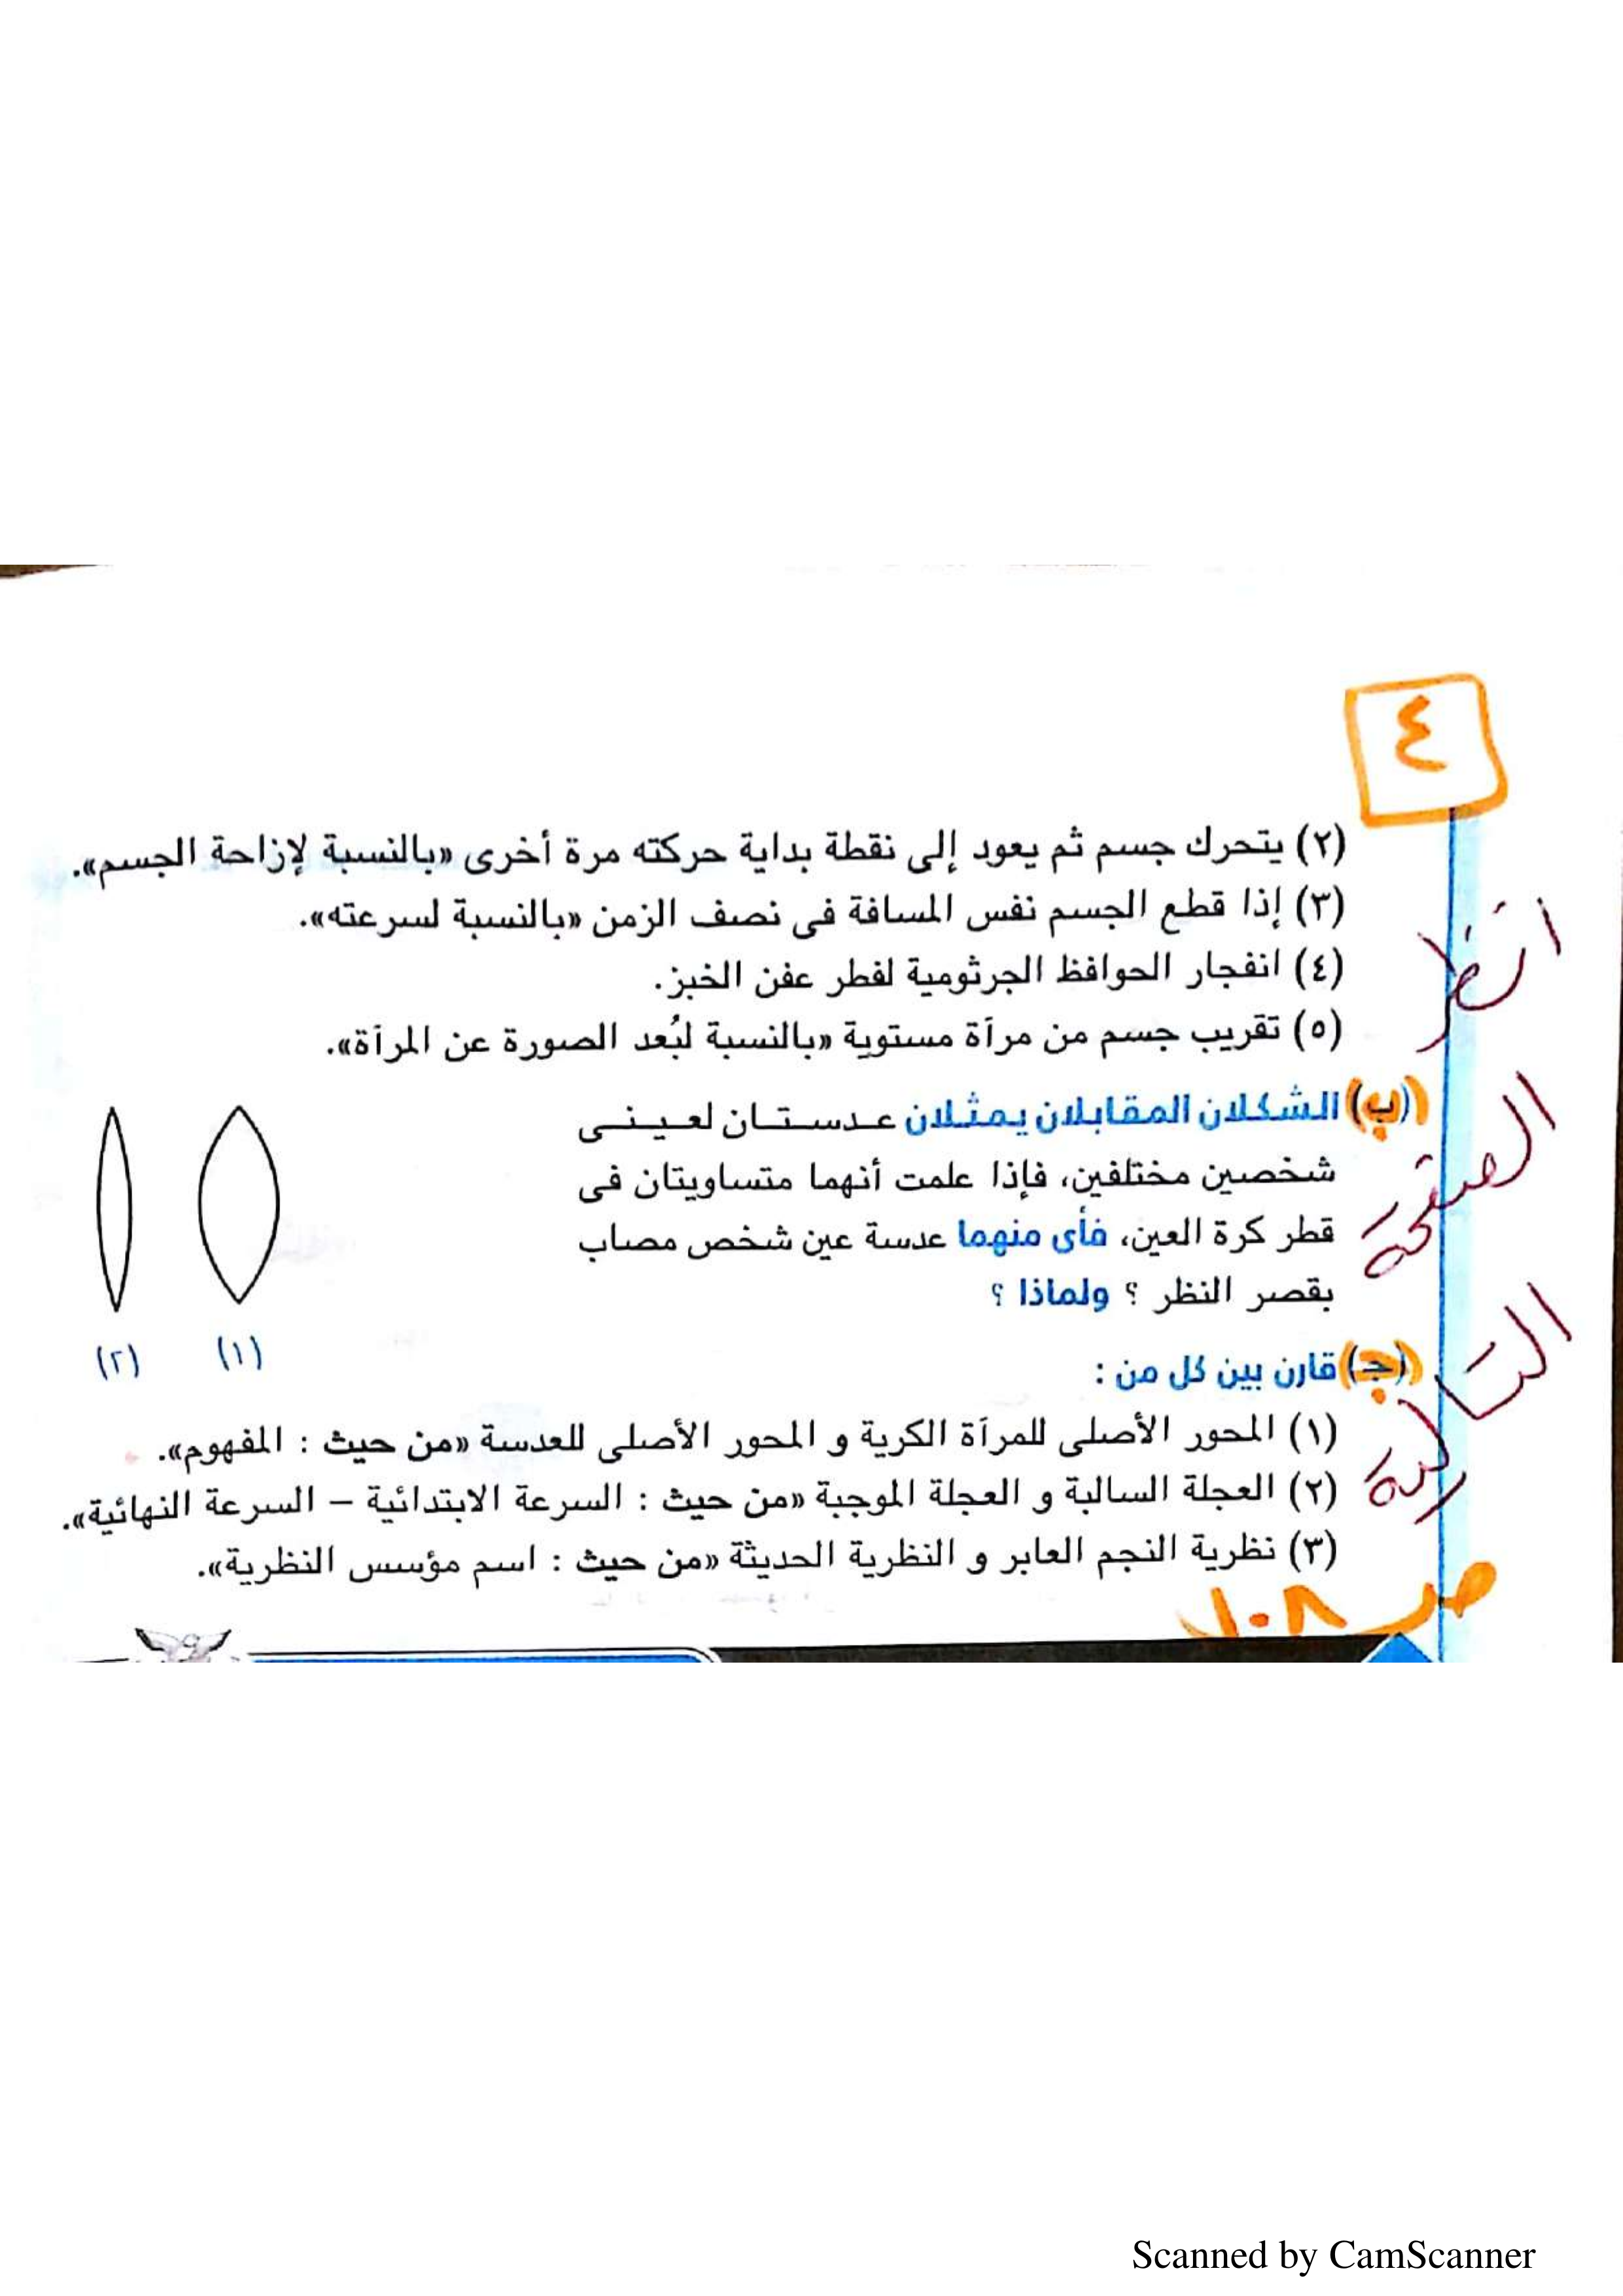 ٤
(٢) يتحرك جسم ثم يعود إلى نقطة بداية حركته مرة أخرى «بالنسبة لإزاحة الجسم».
(٣) إذا قطع الجسم نفس المسافة فى نصف الزمن «بالنسبة لسرعته».
(٤) انفجار الحوافظ الجرثومية لفطر عفن الخبز.
(٥) تقريب جسم من مرآة مستوية «بالنسبة لبُعد الصورة عن المرآة».
(ب) الشكلان المقابلان يمثلان عدستان لعينى
شخصين مختلفين، فإذا علمت أنهما متساويتان فى
قطر كرة العين، فأى منهما عدسة عين شخص مصاب
بقصر النظر ؟ ولماذا ؟
(١)
(٢)
(ج) قارن بين كل من :
(١) المحور الأصلى للمرآة الكرية و المحور الأصلى للعدسة «من حيث : المفهوم».
(٢) العجلة السالبة و العجلة الموجبة «من حيث : السرعة الابتدائية – السرعة النهائية».
(٣) نظرية النجم العابر و النظرية الحديثة «من حيث : اسم مؤسس النظرية».
انظر
الصفحة
التالية
ص ١٠٨
Scanned by CamScanner